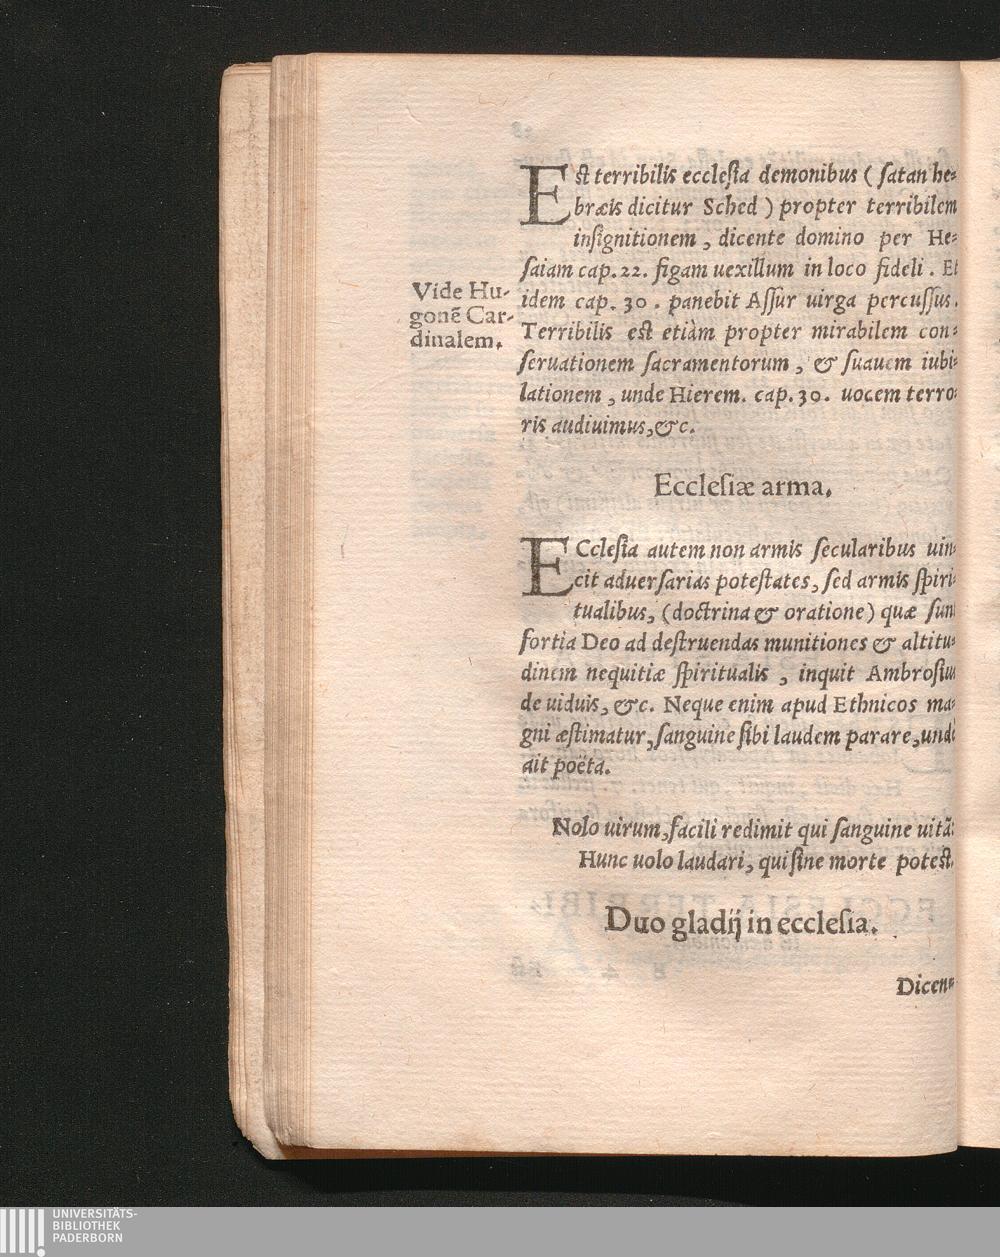 Eſt terribilis eccleſia demonibus ( ſatan he⸗
bræis dicitur Sched ) propter terribilem
inſignitionem , dicente domino per He⸗
ſaiam cap. 22. figam uexillum in loco fideli . Et
idem cap. 30 . panebit Aſſur uirga percuſſus.
Terribilis eſt etiàm propter mirabilem con⸗
ſeruationem ſacramentorum , & ſuauem iubi⸗
lationem , unde Hierem. cap. 30. uocem terro⸗
ris audiuimus,&c.
Vide Hu-
gonẽ Car-
dinalem.
Eccleſiæ arma.
ECcleſia autem non armis ſecularibus uin⸗
cit aduerſarias poteſtates, ſed armis ſpiri⸗
tualibus, (doctrina & oratione) quæ ſunt
fortia Deo ad deſtruendas munitiones & altitu⸗
dinem nequitiæ ſpiritualis , inquit Ambroſius
de uiduis, &c. Neque enim apud Ethnicos ma⸗
gni æſtimatur, ſanguine ſibi laudem parare, unde
ait poëta.
Nolo uirum, facili redimit qui ſanguine uitã:
Hunc uolo laudari, qui ſine morte poteſt.
Duo gladij in eccleſia.
Dicen⸗
UNIVERSITÄTS-
BIBLIOTHEK
PADERBORN